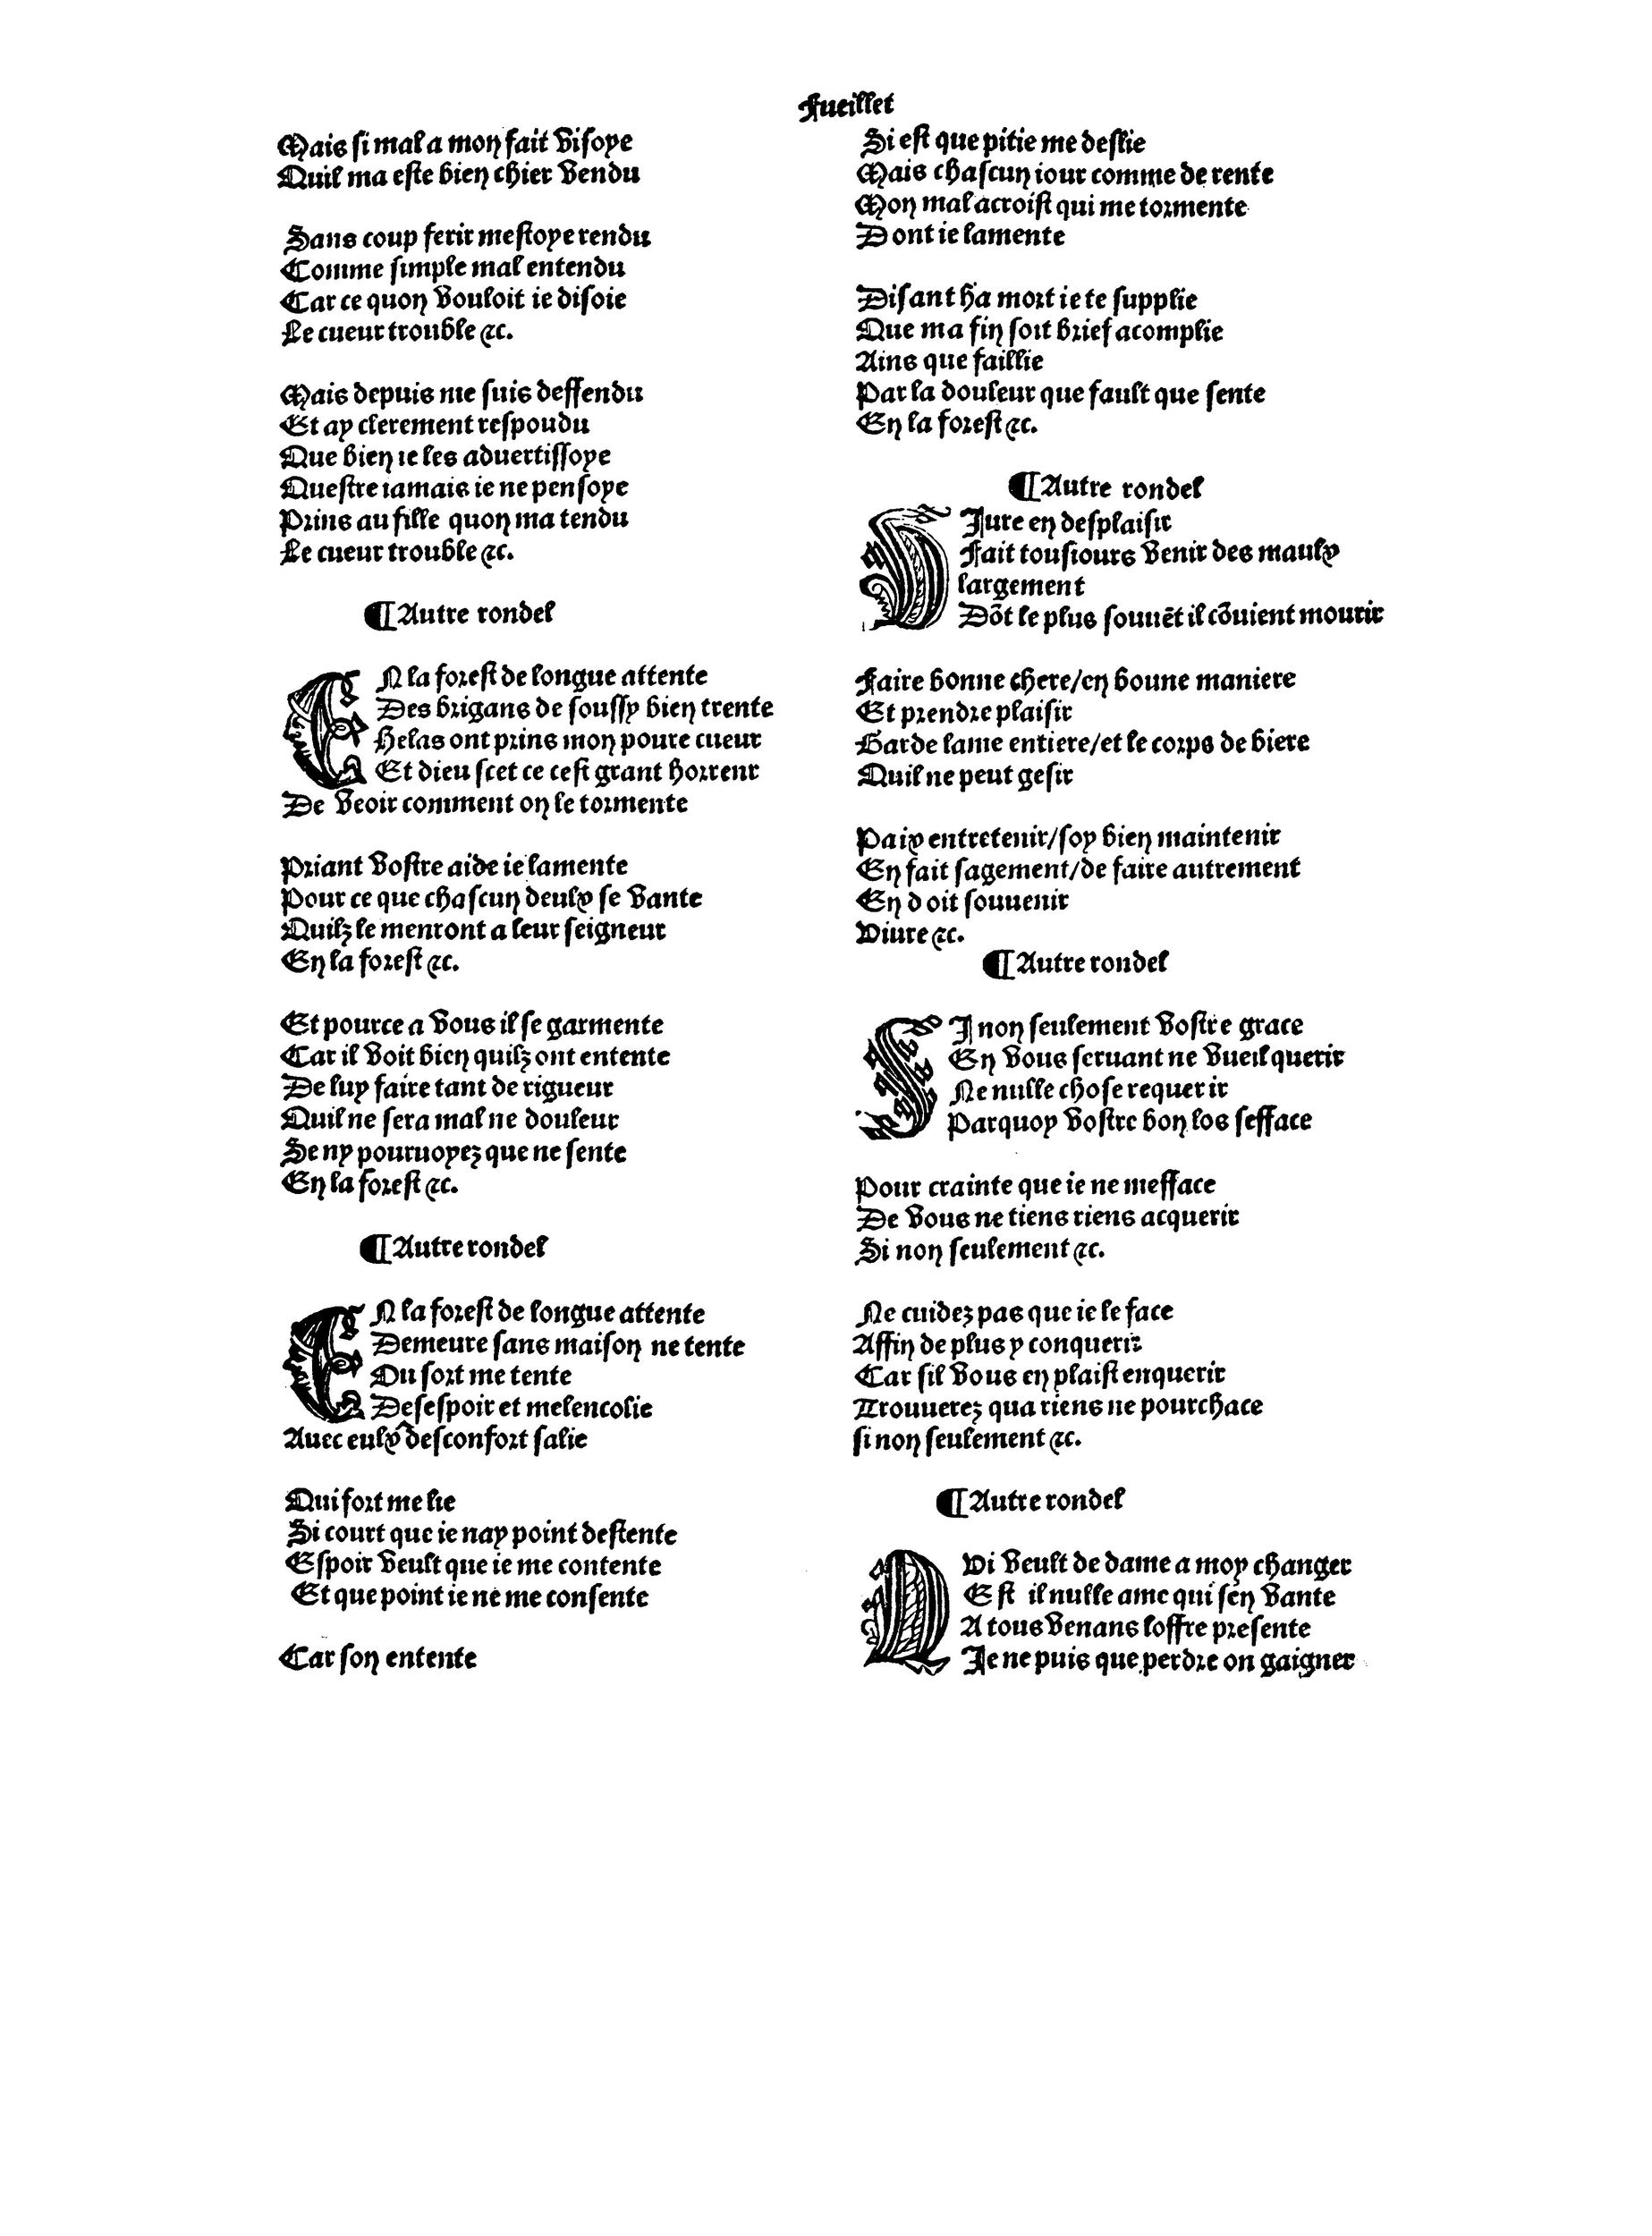 Fueillet
Mais si mal a mon fait visoye
Quil ma este bien chier vendu
Sans coup ferir mestoye rendu
Comme simple mal entendu
Car ce quon vouloit ie disoie
Le cueur trouble &c.
Mais depuis me suis deffendu
Et ay clerement respoudu
Que bien ie les aduertissoye
Questre iamais ie ne pensoye
Prins au fille quon ma tendu
Le cueur trouble &c.
¶Autre rondel
EN la forest de longue attente
Des brigans de soussy bien trente
Helas ont prins mon poure cueur
Et dieu scet ce cest grant horreur
De veoir comment on le tormente
Priant vostre aide ie lamente
Pour ce que chascun deulx se vante
Quilz le menront a leur seigneur
En la forest &c.
Et pource a vous il se garmente
Car il voit bien quilz ont entente
De luy faire tant de rigueur
Quil ne sera mal ne douleur
Se ny pouruoyez que ne sente
En la forest &c.
¶Autre rondel
EN la forest de longue attente
Demeure sans maison ne tente
Ou sort me tente
Desespoir et melencolie
Auec eulx desconfort salie
Qui fort me lie
Si court que ie nay point destente
Espoir veult que ie me contente
Et que point ie ne me consente
Car son entente
Si est que pitie me deslie
Mais chascun iour comme de rente
Mon mal acroist qui me tormente
Dont ie lamente
Disant ha mort ie te supplie
Que ma fin soit brief acomplie
Ains que faillie
Par la douleur que fault que sente
En la forest &c.
¶Autre rondel
VIure en desplaisir
Fait tousiours venir des maulx
largement
Dōt le plus souuēt il cōuient mourir
Faire bonne chere/en boune maniere
Et prendre plaisir
Garde lame entiere/et le corps de biere
Quil ne peut gesir
Paix entretenir/soy bien maintenir
En fait sagement/de faire autrement
En doit souuenir
Viure &c.
¶Autre rondel
SI non seulement vostre grace
En vous seruant ne vueil querir
Ne nulle chose requerir
Parquoy vostre bon los sefface
Pour crainte que ie ne mefface
De vous ne tiens riens acquerir
Si non seulement &c.
Ne cuidez pas que ie le face
Affin de plus y conquerir
Car sil vous en plaist enquerir
Trouuerez qua riens ne pourchace
si non seulement &c.
¶Autre rondel
QVi veult de dame a moy changer
Est il nulle ame qui sen vante
A tous venans loffre presente
Ie ne puis que perdre on gaigner